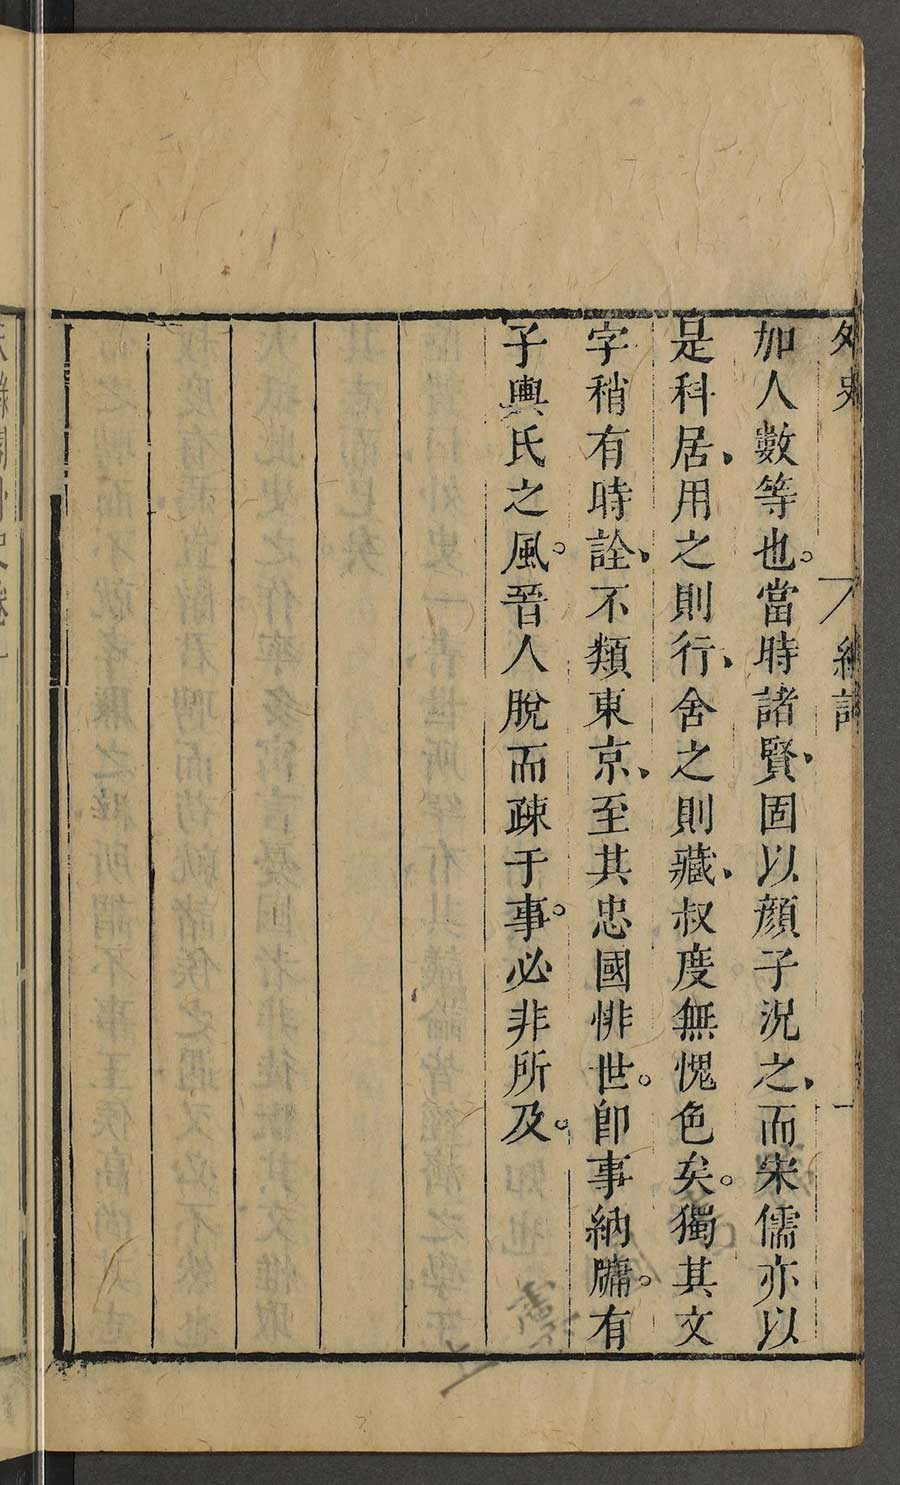 外史 總評
加人數等也。當時諸賢、固以顔子況之、而宋儒亦以
是科居、用之則行、舍之則藏、叔度無愧色矣。獨其文
字稍有時詮、不類東京、至其忠國悱世。卽事納牖。有
子輿氏之風。晉人脫而疎于事。必非所及。